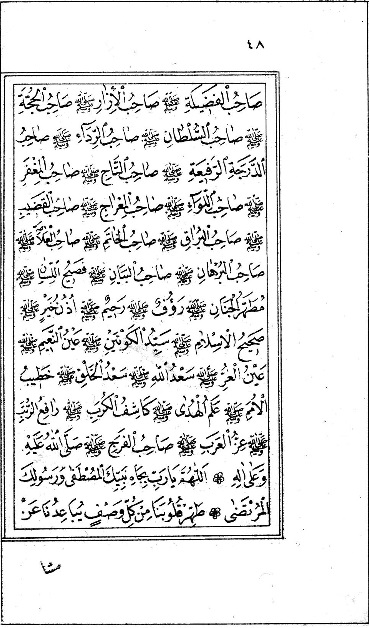 ٤٨
صَاحِبُ الْفَضِيلَةِ ﷺ صَاحِبُ الْأِزَارِ ﷺ صَاحِبُ الْحُجَّةِ
ﷺ صَاحِبُ السُّلْطَانِ ﷺ صَاحِبُ الرِّدَاءِ ﷺ صَاحِبُ
الدَّرَجَةِ الرَّفِيعَةِ ﷺ صَاحِبُ التَّاجِ ﷺ صَاحِبُ الْمِغْفَرِ
ﷺ صَاحِبُ اللِّوَاءِ ﷺ صَاحِبُ الْمِعْرَاجِ ﷺ صَاحِبُ الْقَضِيبِ
ﷺ صَاحِبُ الْبُرَاقِ ﷺ صَاحِبُ الْخَاتَمِ ﷺ صَاحِبُ الْعَلَامَةِ ﷺ
صَاحِبُ الْبُرْهَانِ ﷺ صَاحِبُ الْبَيَانِ ﷺ فَصِيحُ اللِّسَانِ ﷺ
مُطَهَّرُ الْجَنَانِ ﷺ رَؤُفٌ ﷺ رَحِيمٌ ﷺ أُذُنُ خَيْرٍ ﷺ
صَحِيحُ الْإِسْلَامِ ﷺ سَيِّدُ الْكَوْنَيْنِ ﷺ عَيْنُ النَّعِيمِ ﷺ
عَيْنُ الْغُرِّ ﷺ سَعْدُ اللهِ ﷺ سَعْدُ الْخَلْقِ ﷺ خَطِيبُ
الْأُمَمِ ﷺ عَلَمُ الْهُدَى ﷺ كَاشِفُ الْكُرَبِ ﷺ رَافِعُ الرُّتَبِ
ﷺ عِزُّ الْعَرَبِ ﷺ صَاحِبُ الْفَرَجِ ﷺ صَلَّى اللهُ عَلَيْهِ
وَعَلَى اٰلِهِ ۞ اَللّٰهُمَّ يَارَبِّ بِجَاهِ نَبِيِّكَ الْمُصْطَفَى وَرَسُولِكَ
الْمُرْتَضَى ۞ طَهِّرْ قُلُوبَنَا مِنْ كُلِّ وَصْفٍ يُبَاعِدُنَا عَنْ